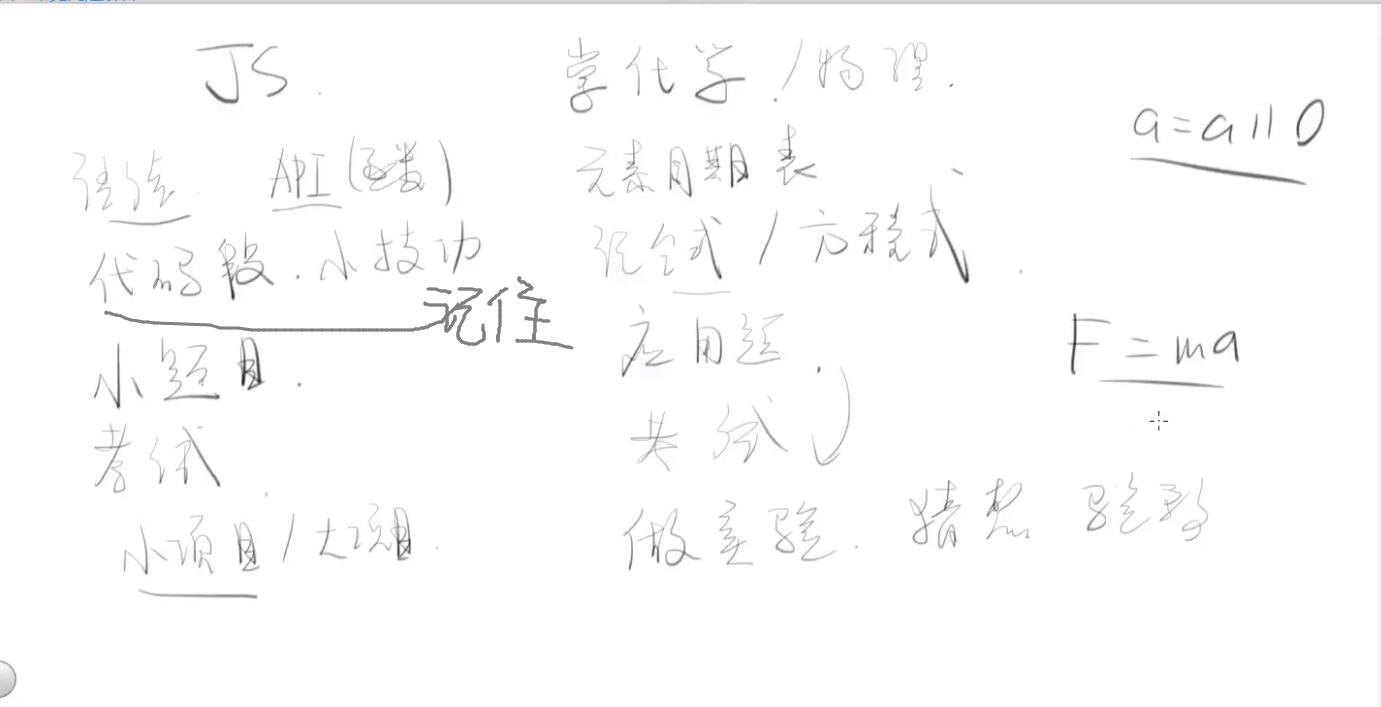 JS.
学化学/物理.
a=a||0
语法 API(函数)
元素周期表
代码段.小技巧
记公式/方程式.
记住
小题目.
应用题.
F=ma
考试
考试
小项目/大项目.
做实验.猜想 验教